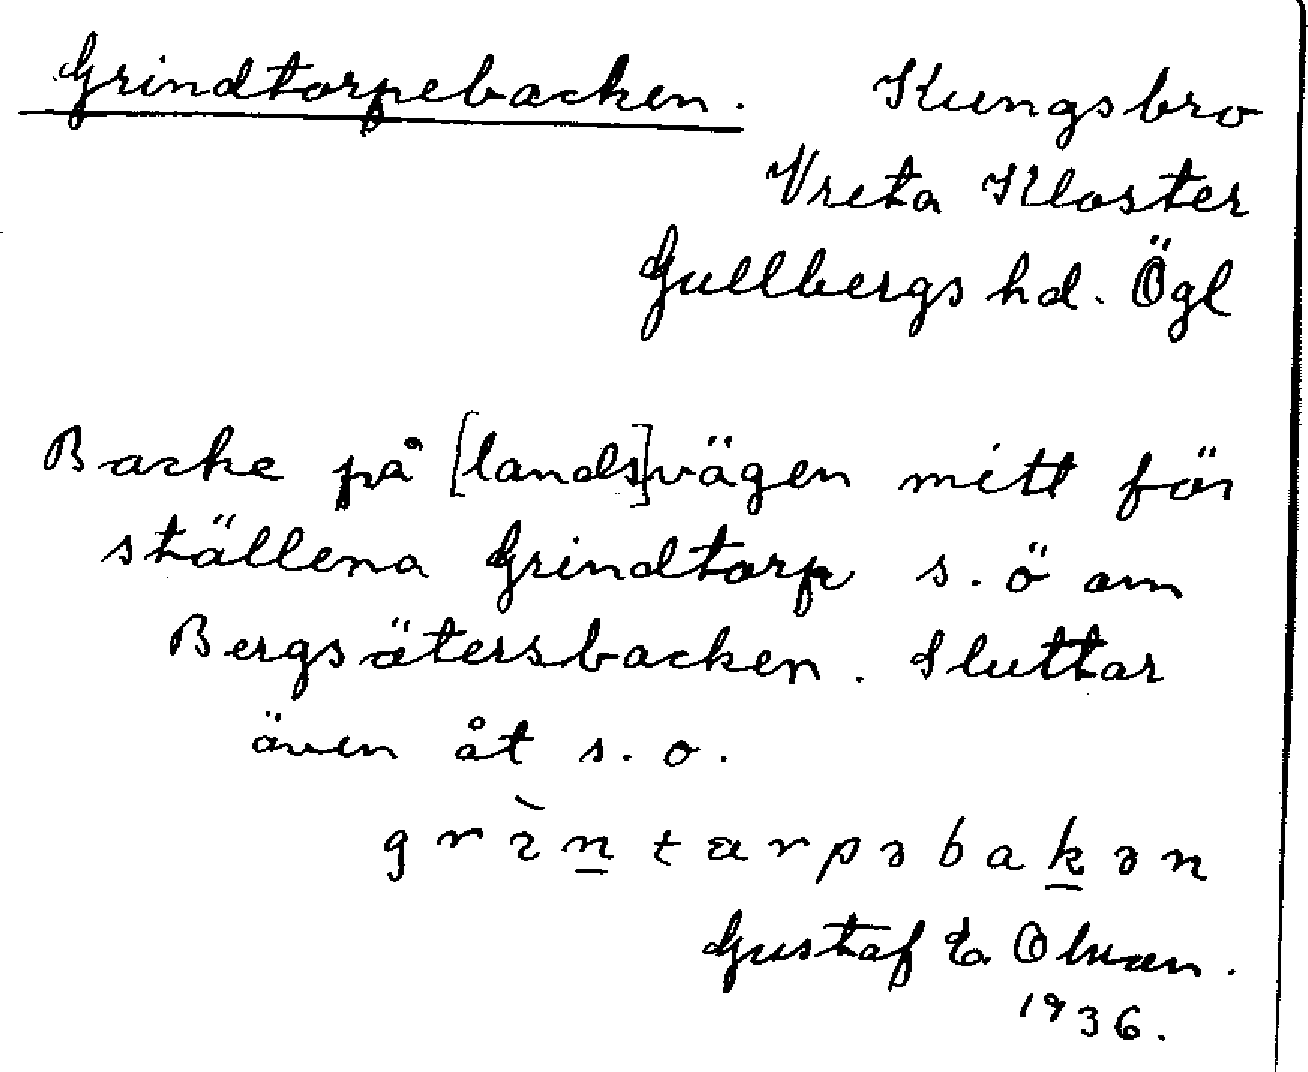 Grindtorpebacken. Kungsbro
Vreta Kloster
Gullbergs hd. Ögl
Backe på [lands]vägen mitt för
ställena Grindtorp s. ö om
Bergsätersbacken. Sluttar
även åt s. o.
grìn̲tarpəbak̲ən
Gustaf E. Olsson.
1936.